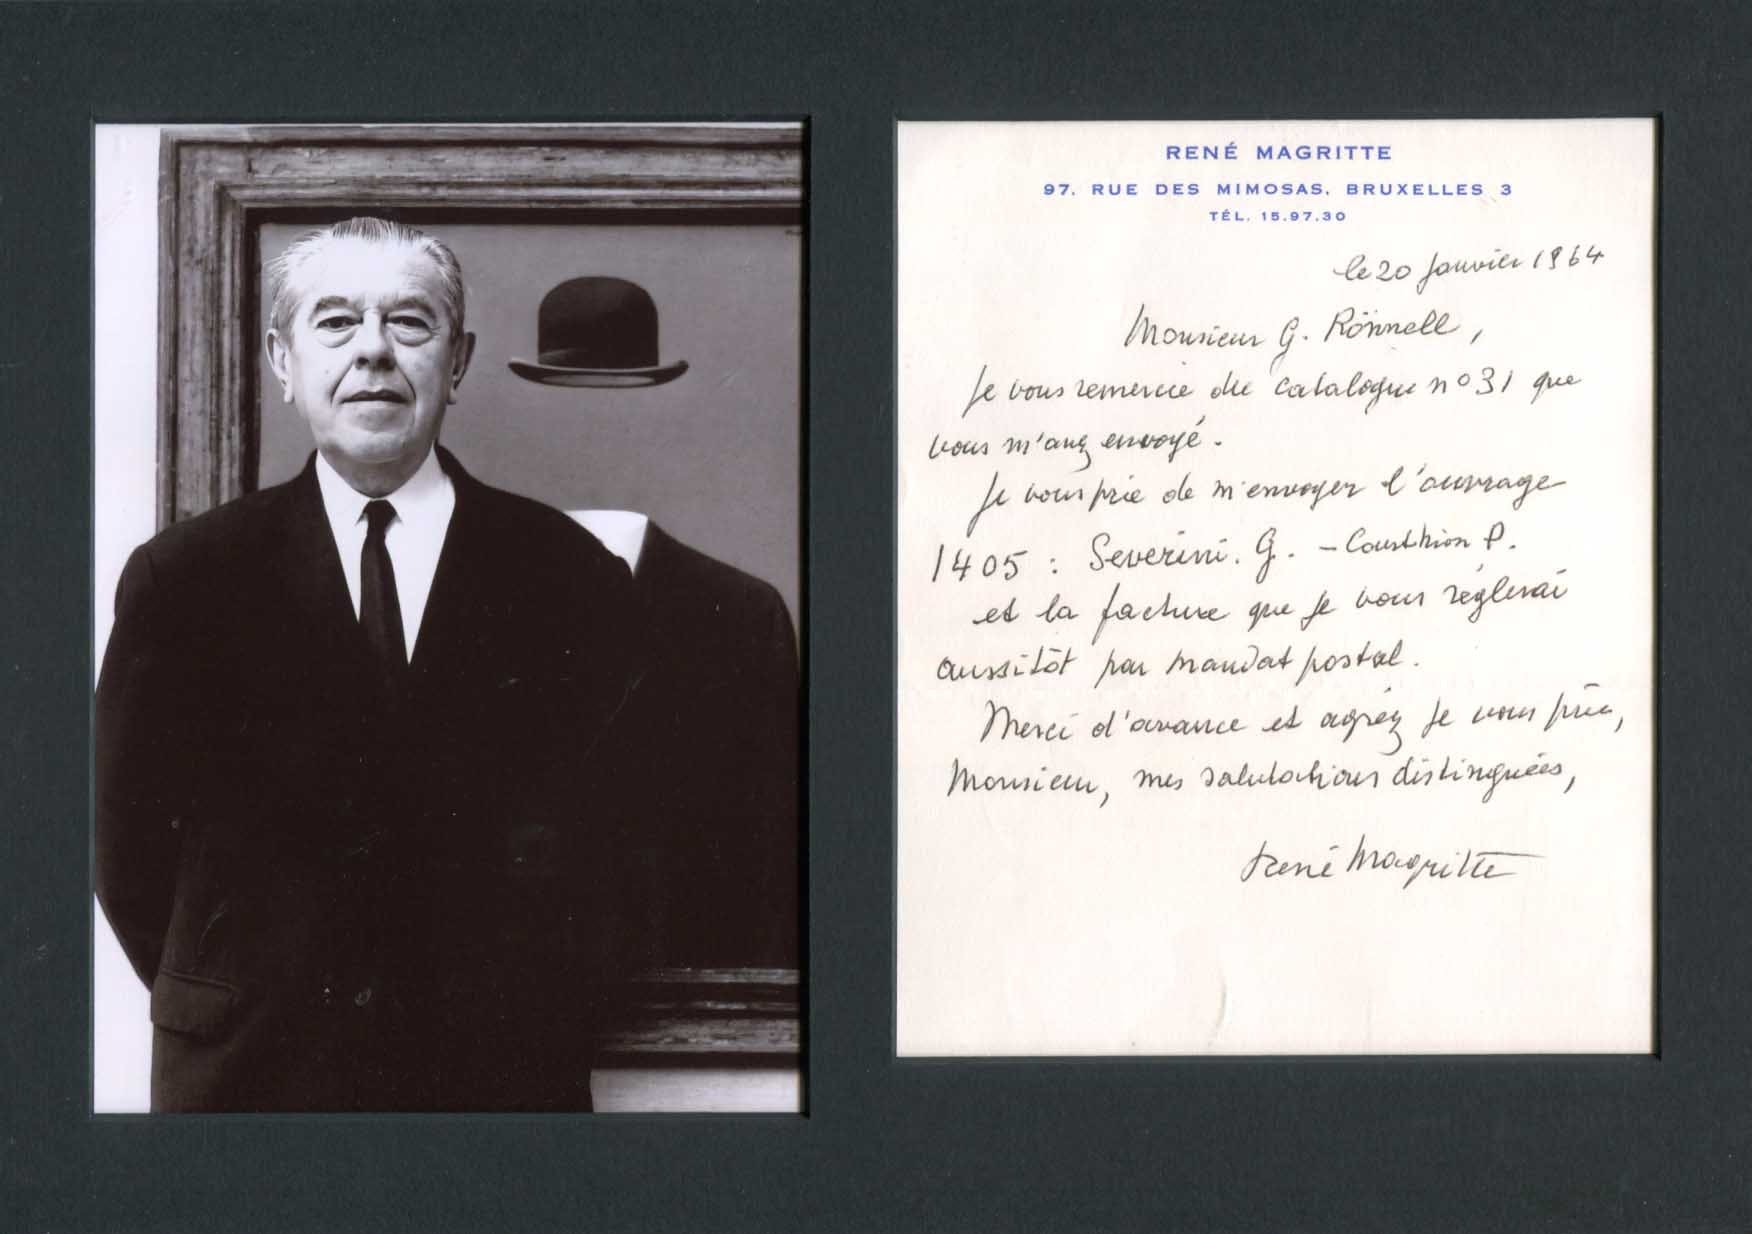 RENÉ MAGRITTE
97, RUE DES MIMOSAS, BRUXELLES 3
TÉL. 15.97.30
le 20 janvier 1964
Monsieur G. Rönnell,
Je vous remercie du catalogue n° 31 que
vous m'avez envoyé.
Je vous prie de m'envoyer l'ouvrage
1405 : Severini. G. – P.
et la facture que je vous réglerai
aussitôt par mandat postal.
Merci d'avance et agréez je vous prie,
Monsieur, mes salutations distinguées,
René Magritte